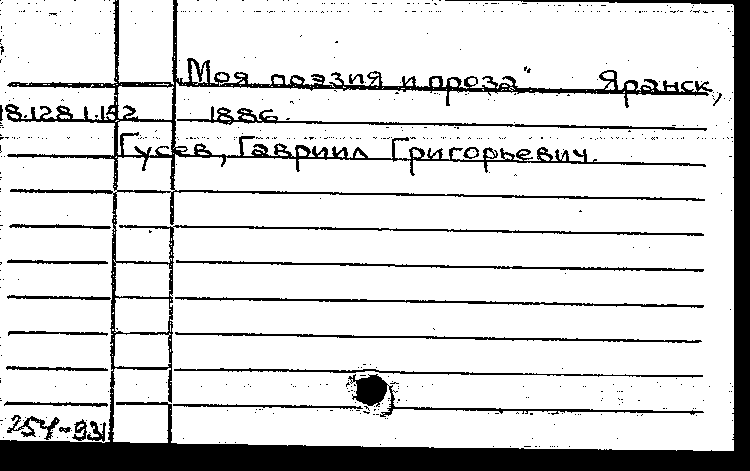 „Моя поэзия и проза" Яранск,
18.128.1.152 1886.
Гусев, Гавриил Григорьевич.
254-931